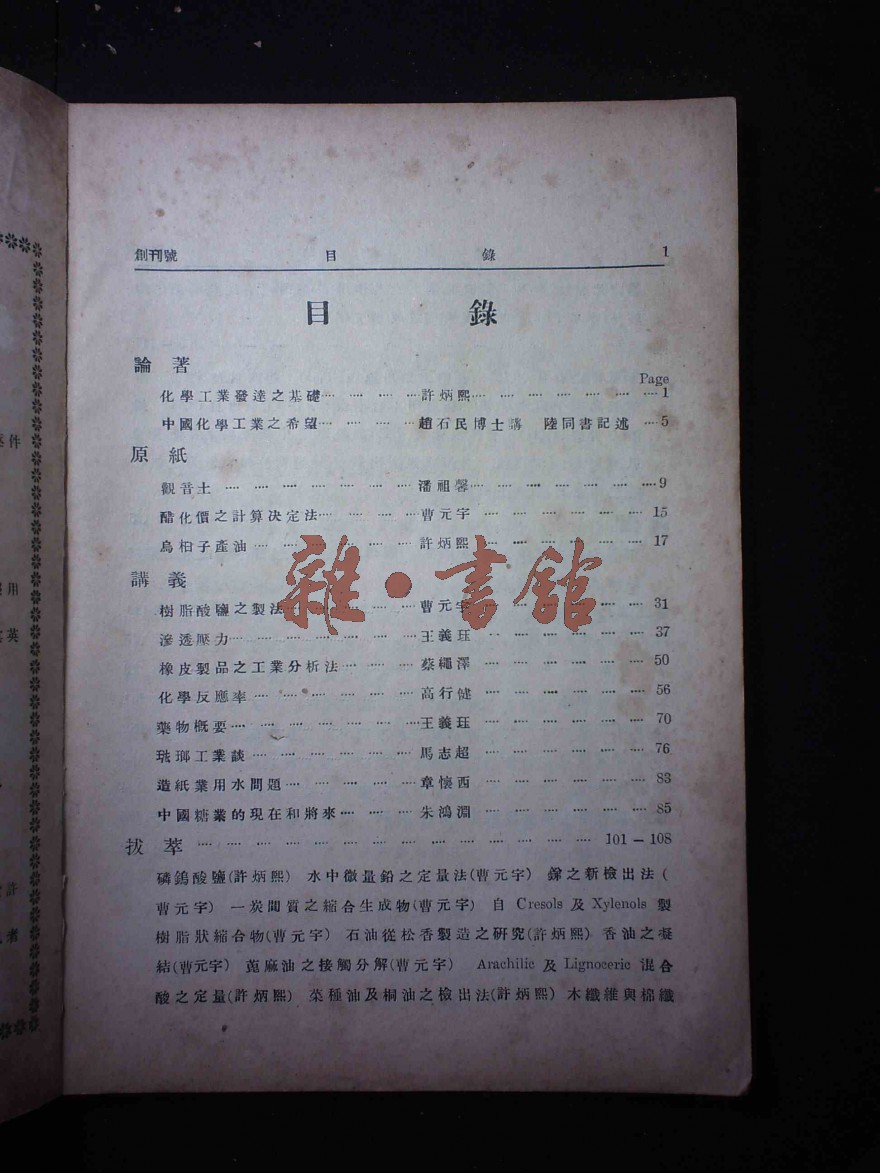 創刊號 目 錄 1
目 錄
論著
Page
化學工業發達之基礎 許炳熙 1
中國化學工業之希望 趙石民博士講 陸同書記述 5
原紙
觀音土 潘祖馨 9
醋化價之計算决定法 曹元宇 15
烏桕子產油 許炳熙 17
講義
樹脂酸鹽之製法 曹元宇 31
滲透壓力 王義珏 37
橡皮製品之工業分析法 蔡繩澤 50
化學反應率 高行健 56
藥物概要 王義珏 70
琺瑯工業談 馬志超 76
造紙業用水問題 章懷西 83
中國糖業的現在和將來 朱鴻淵 85
拔萃 101－108
磷鎢酸鹽(許炳熙) 水中微量鉛之定量法(曹元宇) 鎵之新檢出法(
曹元宇) 一炭間質之縮合生成物(曹元宇) 自 Cresols 及 Xylenols 製
樹脂狀縮合物(曹元宇) 石油從松香製造之研究(許炳熙) 香油之凝
結(曹元宇) 蓖麻油之接觸分解(曹元宇) Arachilic 及 Lignoceric 混合
酸之定量(許炳熙) 菜種油及桐油之檢出法(許炳熙) 木纖維與棉纖
件
用
英
許
者
雜·書館